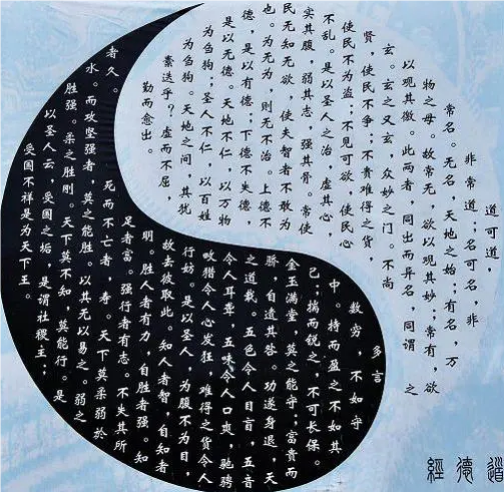 道可道，
非常道；名可名，非
常名。无名，天地之始；有名，万
物之母。故常无，欲以观其妙；常有，欲
以观其徼。此两者，同出而异名，同谓 之
玄。玄之又玄，众妙之门。不尚
贤，使民不争；不贵难得之货，
使民不为盗；不见可欲，使民心
不乱。是以圣人之治，虚其心，
实其腹，弱其志，强其骨。常使
民无知无欲，使夫智者不敢为
也。为无为，则无不治。上德不
德，是以有德；下德不失德，
是以无德。天地不仁，以万物
为刍狗；圣人不仁，以百姓
为刍狗。天地之间，其犹
素迭乎？虚而不屈，
勤而愈出。
多言
数穷，不如守
中。持而盈之不如其
已；揣而锐之，不可长保。
金玉满堂，莫之能守；富贵而
骄，自遗其咎。功遂身退，天
之道哉。五色令人目盲，五音
令人耳聋，五味令人口爽，驰骋
畋猎令人心发狂，难得之货令人
行妨。是以圣人，为腹不为目，
故去彼取此。知人者智，自知者
明。胜人者有力，自胜者强。知
足者富。强行者有志。不失其所
者久。死而不亡者，寿。天下莫柔弱於
水。而攻坚强者，莫之能胜。以其无以易之。弱之
胜强。柔之胜刚。天下莫不知，莫能行。是
以圣人云，受国之垢，是谓社稷主；
受国不祥是为天下王。
道德經